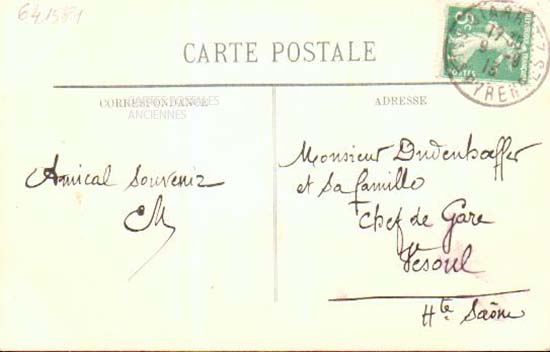 641581
CARTE POSTALE
CORRESPONDANCE
CARTES POSTALES
ANCIENNES
ADRESSE
Amical Souvenir
CM
Monsieur Dudenhoeffer
et sa famille
Chef de Gare
Vesoul
Hte Saône